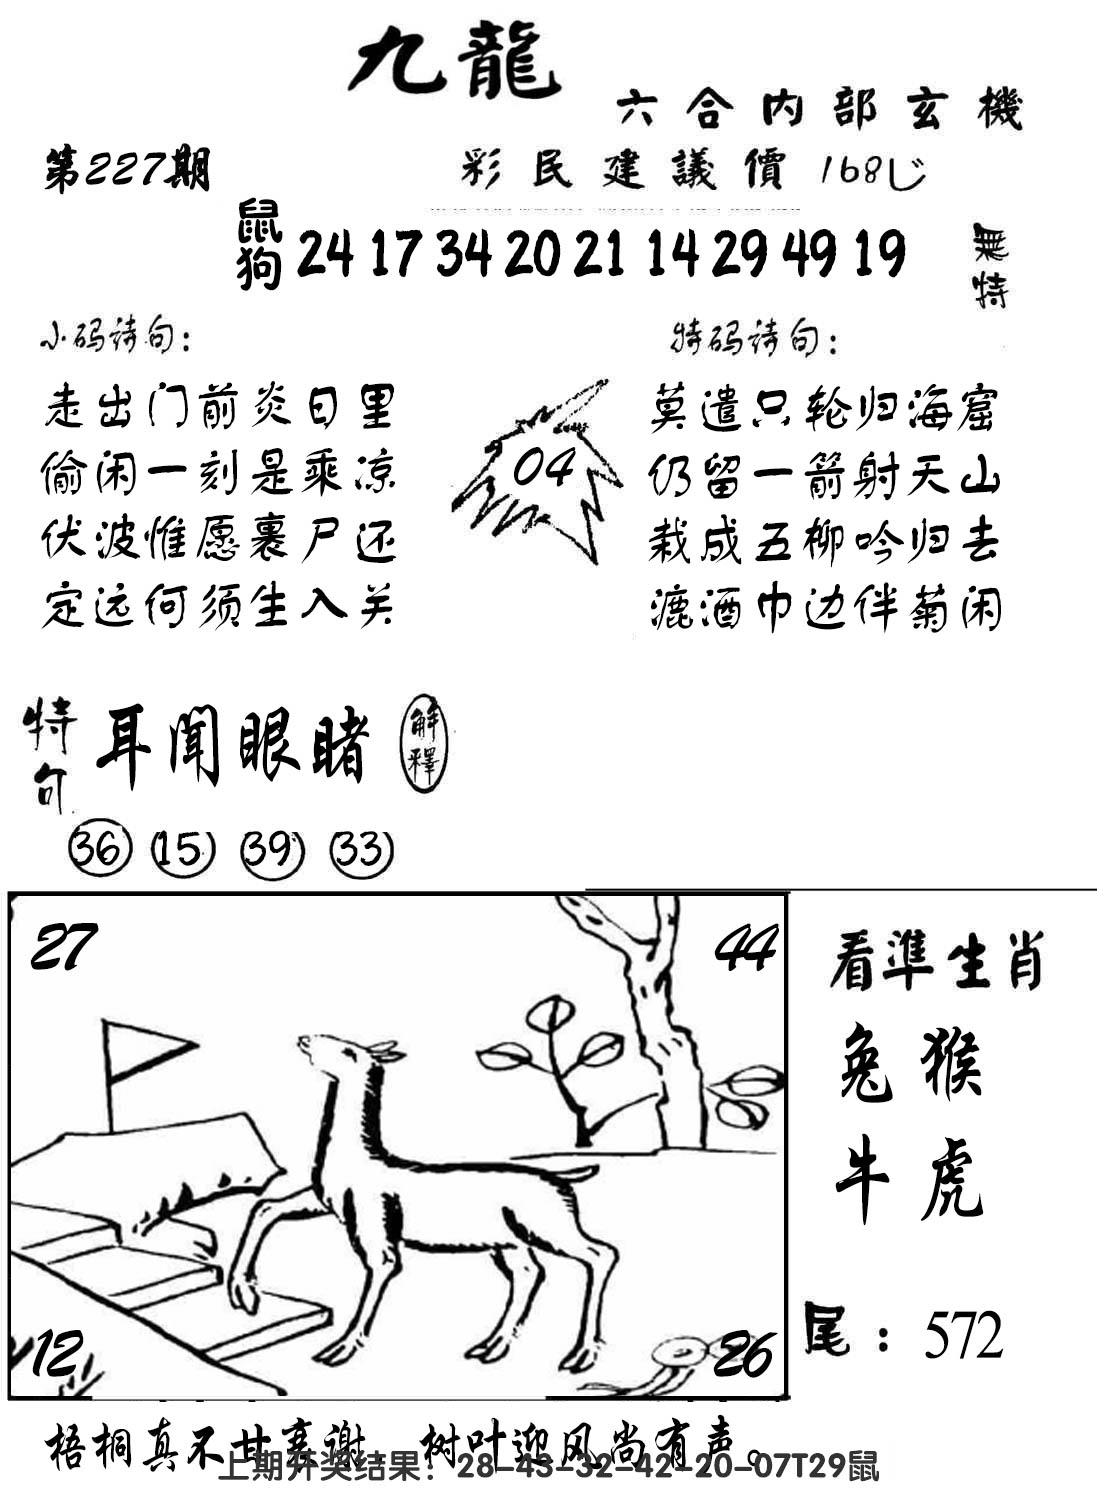 九龍
六合内部玄機
第227期
彩民建議價168じ
鼠狗 24 17 34 20 21 14 29 49 19 無特
小码诗句：
走出门前炎日里
偷闲一刻是乘凉
伏波惟愿裹尸还
定远何须生入关
04
特码诗句：
莫遣只轮归海窟
仍留一箭射天山
栽成五柳吟归去
漉酒巾边伴菊闲
特句 耳闻眼睹 解釋
36 15 39 33
27 44
12 26
看準生肖
兔猴
牛虎
尾：572
梧桐真不甘衰谢 树叶迎风尚有声。
上期开奖结果：28-43-32-42-20-07T29鼠